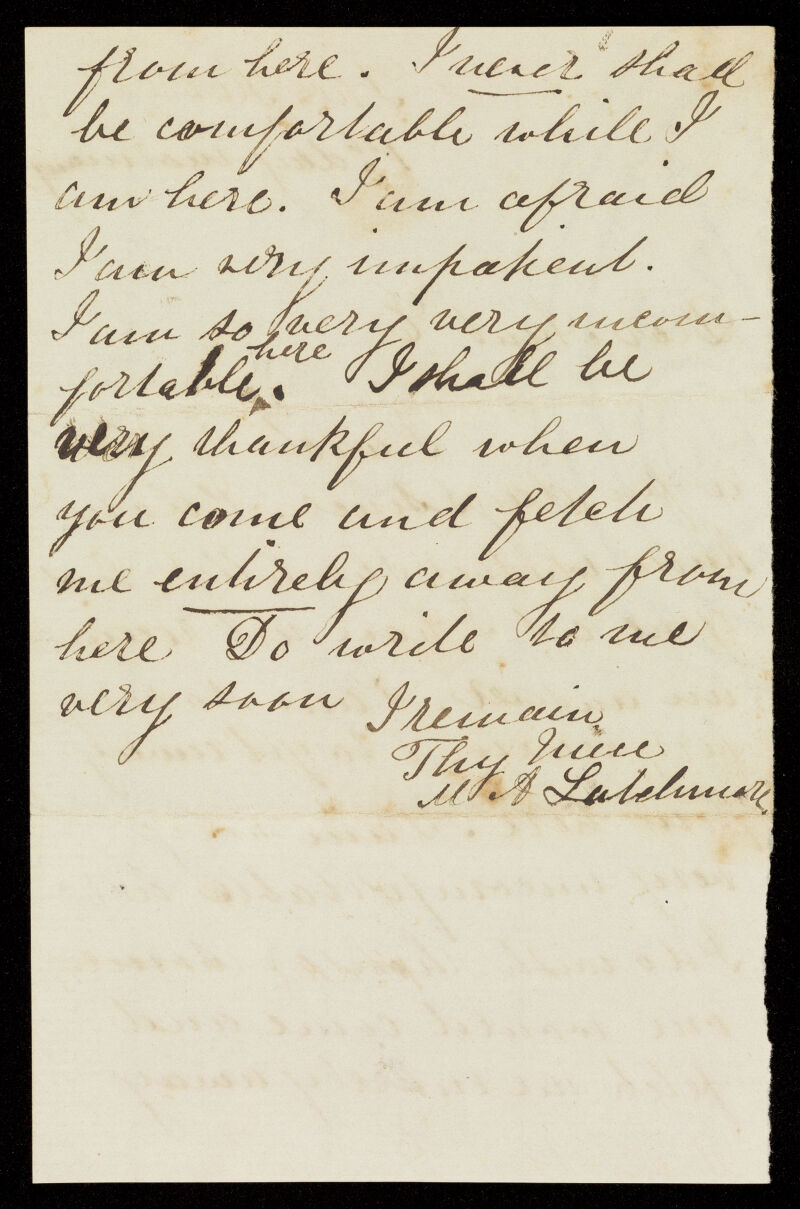 from here. I never shall
be comfortable while I
am here. I am afraid
I am very impatient.
I am so very very uncom-
fortable here. I shall be
very thankful when
you come and fetch
me entirely away from
here Do write to me
very soon I remain
Thy Niece
M A Latchmore.